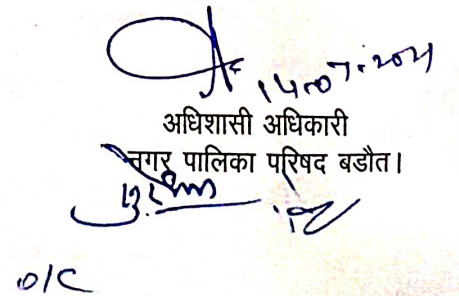 14.07.2021
अधिशासी अधिकारी
नगर पालिका परिषद बडौत।
O/C